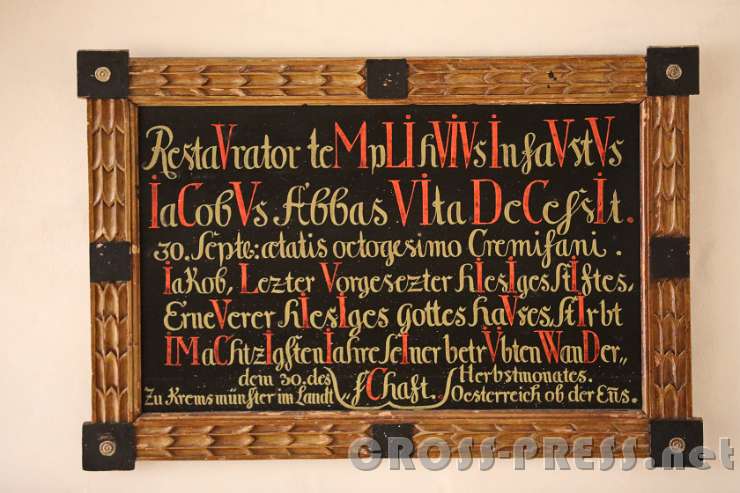 RestaVrator teMpLI hVIVs InfaVstVs
IaCobVs Abbas VIta DeCessIt.
30. Septe: ætatis octogesimo Cremifani.
IaKob, Lezter Vorgesezter hIesIges stIftes,
ErneVerer hIesIges gottes haVses, stIrbt
IM aChtzIgsten Iahre seIner betrVbten WanDer„
dem 30. des „sChaft. Herbstmonates.
Zu Kremsmünster im Landt Oesterreich ob der Eñs.
CROSS-PRESS.net